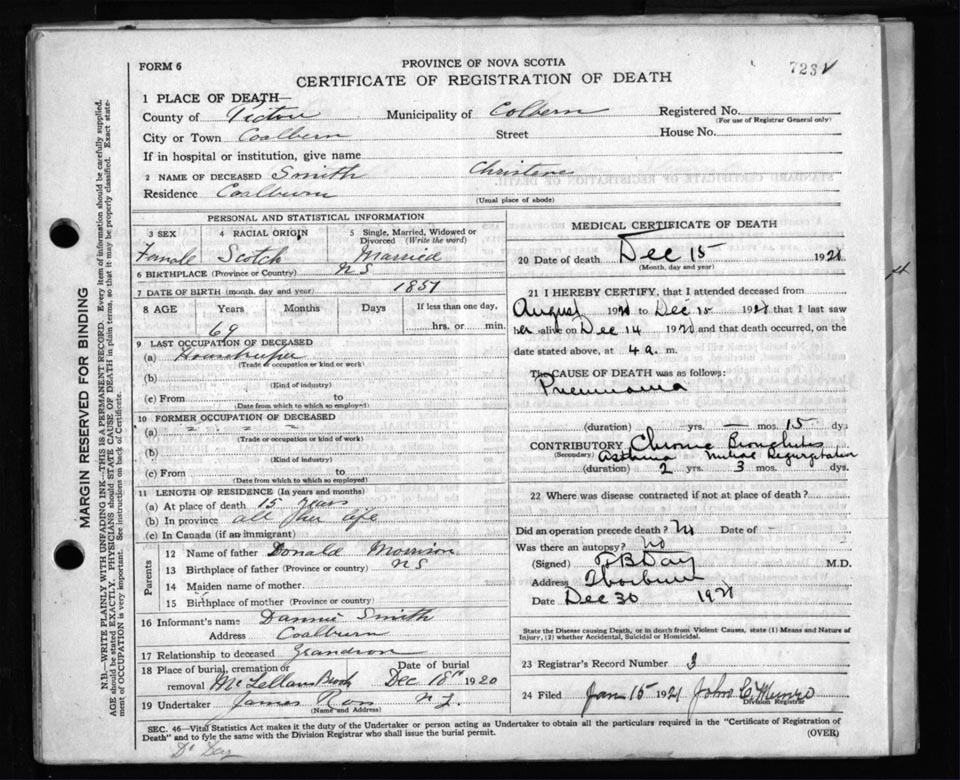 FORM 6
PROVINCE OF NOVA SCOTIA
723
CERTIFICATE OF REGISTRATION OF DEATH
1 PLACE OF DEATH—
County of Pictou Municipality of Colburn Registered No.
(For use of Registrar General only)
City or Town Coalburn Street House No.
If in hospital or institution, give name
2 NAME OF DECEASED Smith Christene
Residence Coalburn
(Usual place of abode)
PERSONAL AND STATISTICAL INFORMATION
3 SEX 4 RACIAL ORIGIN 5 Single, Married, Widowed or
Divorced (Write the word)
Female Scotch Married
6 BIRTHPLACE (Province or Country) N S
7 DATE OF BIRTH (month, day and year) 1851
8 AGE Years Months Days If less than one day,
69 hrs. or min.
9 LAST OCCUPATION OF DECEASED
(a) Housekeeper
(Trade or occupation or kind of work)
(b)
(Kind of industry)
(c) From to
(Date from which to which so employed)
10 FORMER OCCUPATION OF DECEASED
(a) " " "
(Trade or occupation or kind of work)
(b)
(Kind of industry)
(c) From to
(Date from which to which so employed)
11 LENGTH OF RESIDENCE (In years and months)
(a) At place of death 15 years
(b) In province all her life
(c) In Canada (if an immigrant)
Parents
12 Name of father Donald Morrison
13 Birthplace of father (Province or country) N S
14 Maiden name of mother.
15 Birthplace of mother (Province or country)
16 Informant's name Dannie Smith
Address Coalburn
17 Relationship to deceased Grandson
18 Place of burial, cremation or Date of burial
removal McLellans Brook Dec 18 1920
19 Undertaker James Ross N. G.
(Name and Address)
MEDICAL CERTIFICATE OF DEATH
20 Date of death Dec 15 1920
(Month, day and year)
21 I HEREBY CERTIFY, that I attended deceased from
August 1920 to Dec 15 1920 that I last saw
her alive on Dec 14 1920 and that death occurred, on the
date stated above, at 4 a. m.
The CAUSE OF DEATH was as follows:
Pneumonia
(duration) yrs. — mos. 15 dys
CONTRIBUTORY Chronic Bronchitis
(Secondary) Asthma Mitral Regurgitation
(duration) 2 yrs. 3 mos. dys.
22 Where was disease contracted if not at place of death?
Did an operation precede death? No Date of —
Was there an autopsy? No
(Signed) Day M.D.
Address Thorburn
Date Dec 30 1920
State the Disease causing Death, or in death from Violent Causes, state (1) Means and Nature of
Injury, (2) whether Accidental, Suicidal or Homicidal.
23 Registrar's Record Number 3
24 Filed Jan 15 1921 John C. Munro
Division Registrar
SEC. 46—Vital Statistics Act makes it the duty of the Undertaker or person acting as Undertaker to obtain all the particulars required in the "Certificate of Registration of
Death" and to fyle the same with the Division Registrar who shall issue the burial permit.
(OVER)
Dr Day
MARGIN RESERVED FOR BINDING
N.B.—WRITE PLAINLY WITH UNFADING INK—THIS IS A PERMANENT RECORD. Every item of information should be carefully supplied.
AGE should be stated EXACTLY. PHYSICIANS should STATE CAUSE OF DEATH in plain terms, so that it may be properly classified. Exact state-
ment of OCCUPATION is very important. See instructions on back of Certificate.